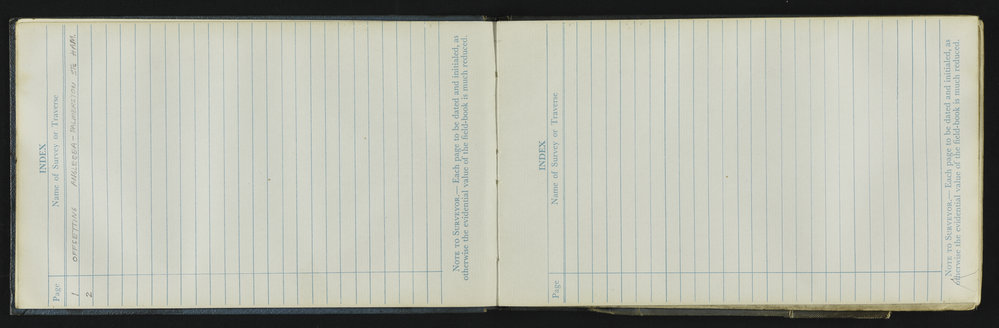 INDEX
Page Name of Survey or Traverse
1 OFFSETTING ANGLESEA - PALMERSTON STS HAM.
2
NOTE TO SURVEYOR.— Each page to be dated and initialed, as
otherwise the evidential value of the field-book is much reduced.
INDEX
Page Name of Survey or Traverse
NOTE TO SURVEYOR.— Each page to be dated and initialed, as
otherwise the evidential value of the field-book is much reduced.